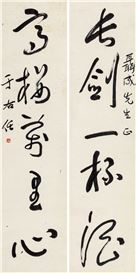 長劍一杯酒
成先生正
高樓萬里心
于右任